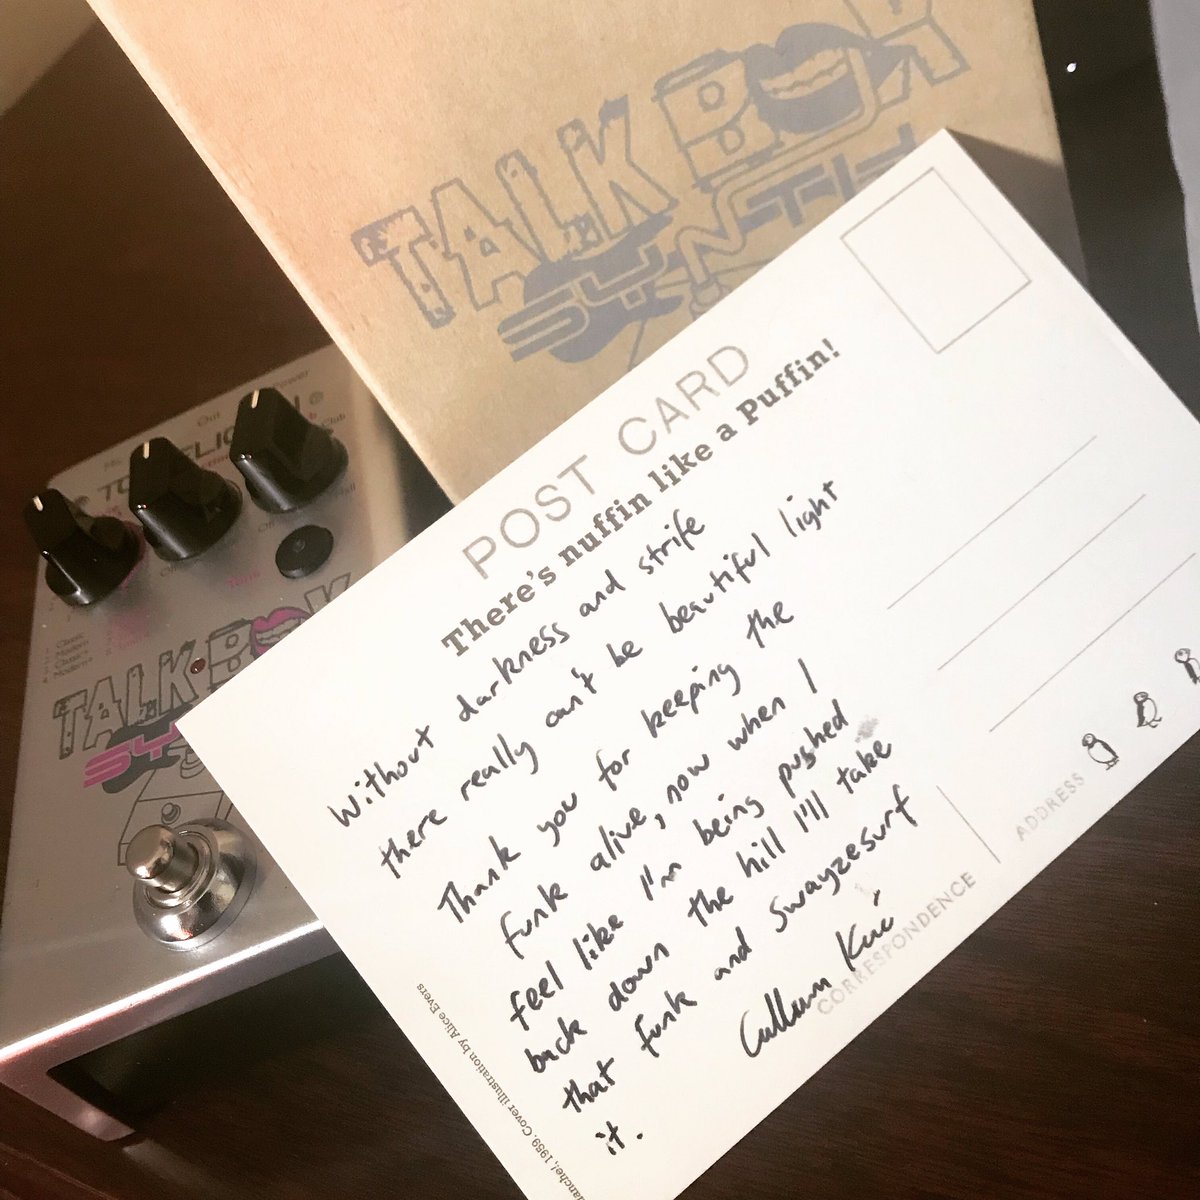 TALK BOX
SYNTH
POST CARD
There's nuffin like a Puffin!
Without darkness and strife
there really can't be beautiful light
Thank you for keeping the
funk alive, now when I
feel like I'm being pushed
back down the hill I'll take
that funk and Swayzesurf
it.
Cullum
CORRESPONDENCE
ADDRESS
1959. Cover illustration by Alice Evers
Out
Power
Tone
Classic
Modern
Classic+
Modern+
TALK BOX